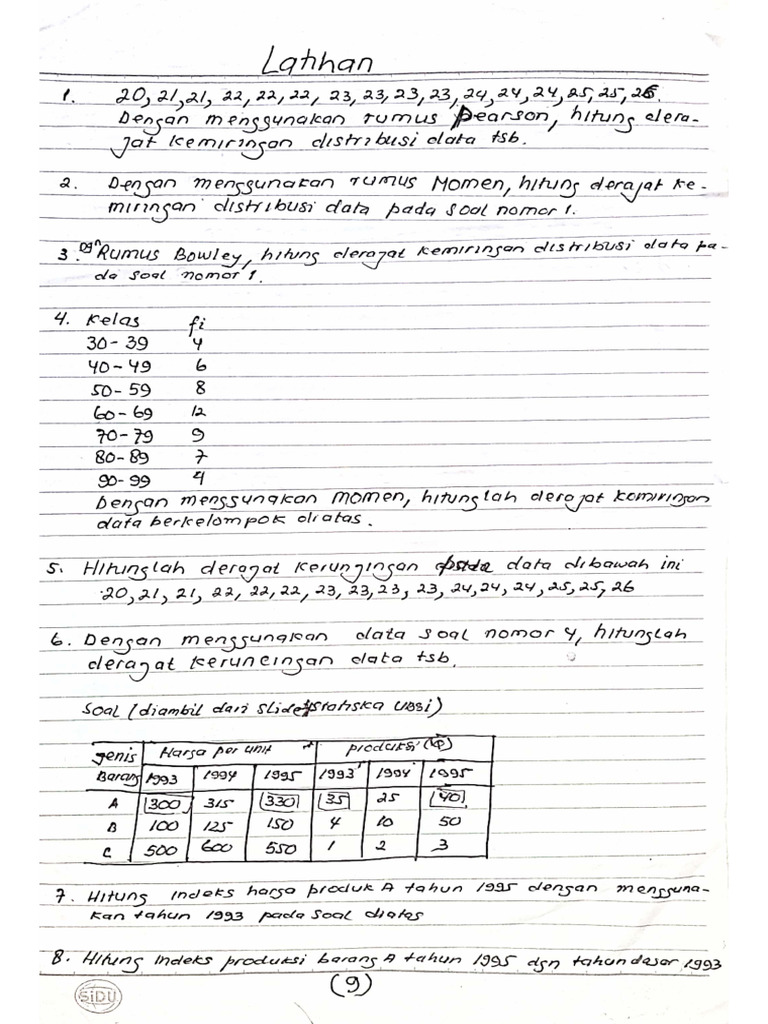 Latihan
1. 20, 21, 21, 22, 22, 22, 23, 23, 23, 23, 24, 24, 24, 25, 25, 26.
Dengan menggunakan rumus Pearson, hitung dera-
jat kemiringan distribusi data tsb.
2. Dengan menggunakan rumus Momen, hitung derajat ke-
miringan distribusi data pada soal nomor 1.
3. dgn Rumus Bowley, hitung derajat kemiringan distribusi data pa-
da soal nomor 1.
4. Kelas fi
30-39 4
40-49 6
50-59 8
60-69 12
70-79 9
80-89 7
90-99 4
Dengan menggunakan Momen, hitunglah derajat kemiringan
data berkelompok diatas.
5. Hitunglah derajat keruncingan data dibawah ini
20, 21, 21, 22, 22, 22, 23, 23, 23, 23, 24, 24, 24, 25, 25, 26
6. Dengan menggunakan data soal nomor 4, hitunglah
derajat keruncingan data tsb.
Soal (diambil dari slide statistika UBSI)
Jenis Harga per unit Produksi
Barang 1993 1994 1995 1993 1994 1995
A 300 315 330 35 25 40
B 100 125 150 4 10 50
C 500 600 550 1 2 3
7. Hitung indeks harga produk A tahun 1995 dengan mengguna-
kan tahun 1993 pada soal diatas
8. Hitung indeks produksi barang A tahun 1995 dgn tahun dasar 1993
(9)
SiDU